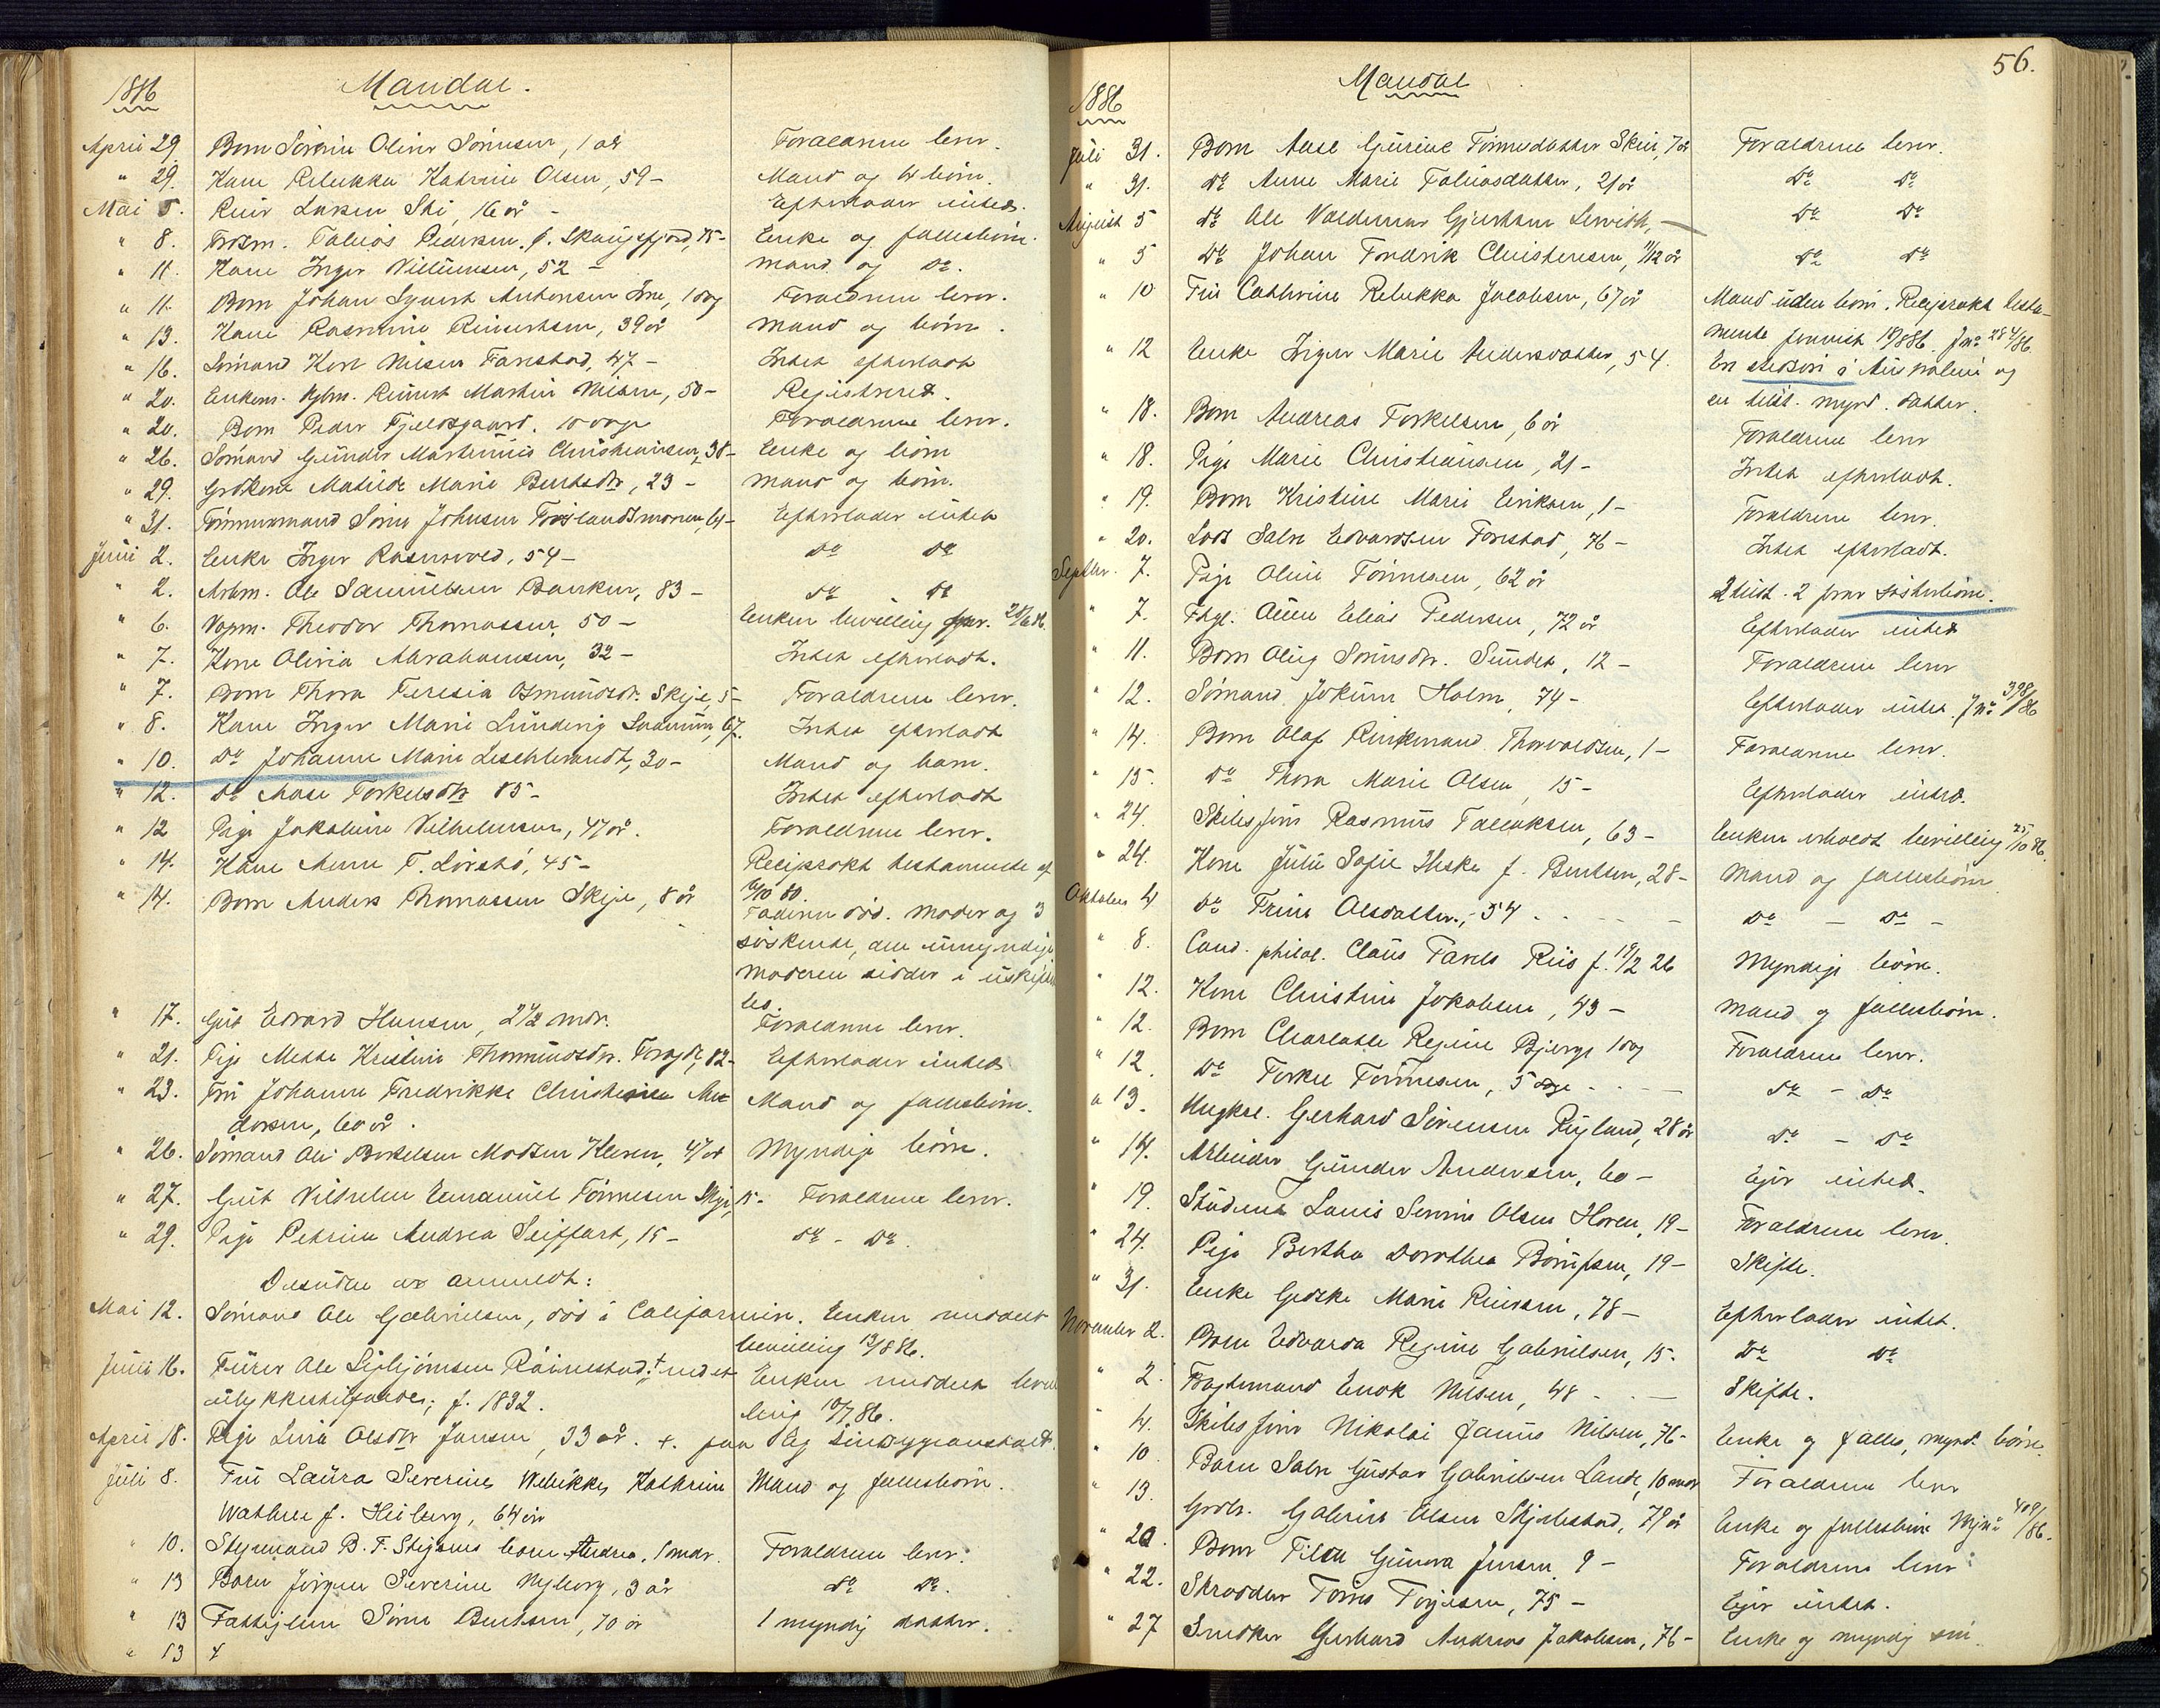 1886 Mandal.
April 29. Barn Sørine Oline Sørensen, 1 år Forældrene lever.
" 29. Kone Rebekka Katrine Olsen, 59 – Mand og 4 børn.
Mai 5. Reier Larsen Ski, 16 år – Efterlader intet.
" 8. Tobias Pedersen f. Skougsfjord, 75 – Enke og fællesbørn.
" 11. Kone Inger Villumsen, 52 – Mand og Do.
" 11. Barn Johan Sigvart Antonsen 1 dag Forældrene lever.
" 13. Kone Rasmine Reinertsen, 39 år Mand og børn.
" 16. Sømand Karl Nielsen Farestad, 47 – Intet efterladt
" 20. Enkem. Reinert Martin Nielsen, 50 – Registreret.
" 20. Barn Peder Fjeldsgaard. 10 dage Forældrene lever.
" 26. Sømand Gunder Martinius Christiansen, 38 – Enke og børn
" 29. Grdkone Matilde Marie Bentsdtr, 23 – Mand og børn.
" 31. Tømmermand Søren Johnsen Frøslandsmonen, 64 – Efterlader intet
Juni 2. Enke Inger Rosnevold, 54 – Do Do
" 2. Arbm. Ole Samuelsen Banken, 83 – Do Do
" 6. Vognm. Theodor Thomassen, 50 – Enken bevilling
" 7. Kone Olivia Abrahamsen, 32 – Intet efterladt.
" 7. Barn Thora Teresia Osmundsdr. Skeje, 5 – Forældrene lever.
" 8. Kone Inger Marie Lundevig 67. Intet efterladt
" 10. Do Johanne Marie Leschbrandt, 30 – Mand og barn.
" 12. Do Aase Torkelsdtr 85 – Intet efterladt
" 12 Pige Jakobine Vilhelmsen, 47 år. Forældrene lever.
" 14. Kone Anne T. 45 – Reciprokt testamente af
" 14. Barn Anders Thomassen Skeje, 8 år 80.
Faderen død. Moder og 3
søskende, alle umyndige
Moderen sidder i uskiftet
bo.
" 17. Gut Edvard Hansen, 2 1/2 mdr. Forældrene lever.
" 21. Pige Mette Kristine Thormundsdtr. 82 – Efterlader intet
" 23. Fru Johanne Fredrikke Christense An Mand og fællesbørn.
dersen, 60 år.
" 26. Sømand Ole Madsen Kleven, 47 år Myndige børn.
" 27. Gut Vilhelm Emanuel Tønnesen Skeje, 15 – Forældrene lever.
" 29. Pige Petrine Andrea Seiffart, 15 – Do – Do.
Desuden er anmeldt:
Mai 12. Sømand Ole Gabrielsen, død i Californien. Enken meddelt
bevilling 13/8 86.
Juni 16. Ole Røinestad † ved et Enken meddelt bevil
ulykkestilfælde; f. 1832. ling 10/7 86.
April 18. Pige Olsdtr Jansen, 33 år. †. paa Eg Sindssygeanstalt.
Juli 8. Fru Laura Severine Wibikke Kathrine Mand og fællesbørn.
Wattne f. Heiberg, 64 år
" 10. Styrmand B. T. Stigens barn Andrea, 1 mdr. Forældrene lever.
" 13 Barn Jørgen Severine Nyborg, 3 år Do Do.
" 13 Fattiglem Søren Bentsen, 70 år 1 myndig datter.
" 13 †
56.
1886 Mandal
Juli 31. Barn Aase Gurine Tønnesdatter Skeie, 7 år Forældrene lever.
" 31. Do Anne Marie Tobiasdatter, 21 år Do Do
August 5 Do Ole Valdemar Gjertsen – Do Do
" 5 Do Johan Fredrik Christensen, 7/12 år Do Do
" 10 Fru Cathrine Rebekka Jacobsen, 67 år Mand uden børn. Reciprokt testa-
mente forevist 18/8 86. Jno 284/86
" 12 Enke Inger Marie Andersdatter, 54. En stedsøn i Australien og
en tilst. mynd. datter.
" 18. Barn Andreas Torkelsen, 6 år Forældrene lever
" 18. Pige Marie Christiansen, 21 – Intet efterladt.
" 19. Barn Kristine Marie Eriksen, 1 – Forældrene lever.
" 20. Lods Salve Edvardsen Farestad, 76 – Intet efterladt.
Septbr. 7. Pige Oline Tønnesen, 62 år 2 tilst. 2 søsterbørn.
" 7. Ftgl. Anne Elias Pedersen, 72 år Efterlader intet
" 11. Barn Oluf Sørensdtr. Sundet, 12 – Forældrene lever
" 12. Sømand Jokum Holm, 74 – Efterlader intet. Jno 398/86
" 14. Barn Olaf Reinhard Thorvaldsen, 1 – Forældrene lever.
" 15. Do Thora Marie Olsen, 15 – Efterlader intet.
" 24. Skibsfører Rasmus Tallaksen, 63 – Enken erholdt bevilling 25/10 86.
" 24. Kone Julie Sofie f. Bentsen, 28 – Mand og fællesbørn
Oktober 4 Do Trine Olsdatter, 54 – Do – Do –
" 8. Cand. philol. Claus Riis f. 19/2 26 Myndige børn.
" 12. Kone Christine Jakobsen, 43 – Mand og fællesbørn.
" 12. Barn Charlotte Regine Bjerge 1 dag Forældrene lever.
" 12. Do Torkel Tønnesen, 5 dage – Do – Do
" 13. Ungkarl. Gerhard Sørensen Rigland, 28 år Do – Do
" 14. Arbeider Gunder Andersen, 60 – Ejer intet.
" 19. Student Louis Severin Olsen Hoven, 19 – Forældrene lever.
" 24. Pige Bertha Dorothea 19 – Skifte.
" 31. Enke Gjedske Marie 78 – Efterlader intet.
November 2. Barn Edvarda Regine Gabrielsen, 15. Do Do
" 2. Fragtemand Enok Nilsen, 48 – Skifte.
" 4. Skibsfører Nikolai Janus Nilsen, 76 – Enke og fælles, mynd. børn
" 10. Barn Salve Gustav Gabrielsen Lande, 10 mdr Forældrene lever
" 13. Grdbr. Gabriel Olsen Skjelestad, 79 år Enke og fællesbørn 409/86.
" 20. Barn Gunora Jensen, 9 – Forældrene lever
" 22. Skrædder Tønnes Torjesen, 75 – Ejer intet.
" 27 Snedker Gerhard Andreas Jakobsen, 76 – Enke og myndig søn.